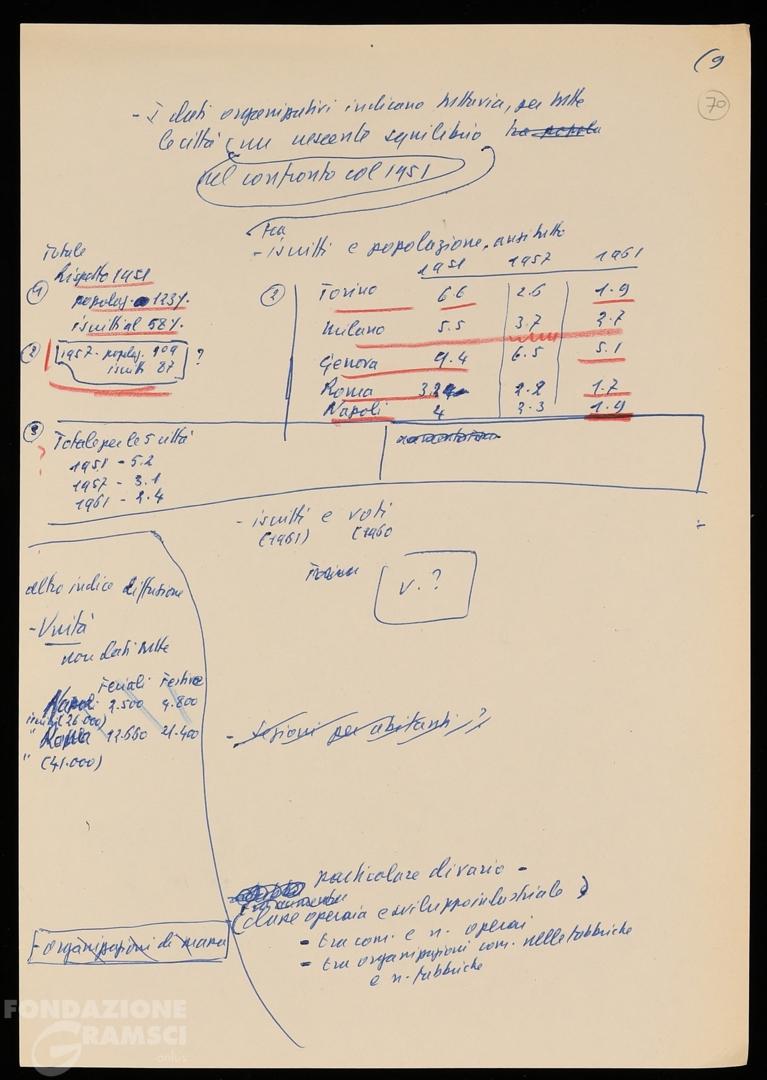 (9
70
- I dati organizzativi indicano tuttavia, per tutte
le città, un crescente squilibrio tra popola
nel confronto col 1951
tra
- iscritti e popolazione, anzitutto
1951 1957 1961
Torino 6.6 2.6 1.9
Milano 5.5 3.7 2.7
Genova 9.4 6.5 5.1
Roma 3.2 2.2 1.7
Napoli 4 3.3 1.9
Totale
(1) Rispetto 1951
popolaz. 123%
iscritti al 58%
(2)
(2) 1957 - popolaz. 109
iscritti 87 ?
(3) Totale per le 5 città
?
1951 - 5.2
1957 - 3.1
1961 - 2.4
- iscritti e voti
(1961) (1960
Torino
V. ?
altro indice diffusione
- Unità
non dati tutte
Feriali Festive
Napoli 2.500 9.800
iscritti (26.000)
" Roma 12.660 21.400
" (41.000)
- Sezioni per abitanti ?
particolare divario -
classe operaia e sviluppo industriale )
- tra com. e n. operai
- tra organizzazioni com. nelle fabbriche
e n. fabbriche
- organizzazioni di massa
FONDAZIONE
GRAMSCI
onlus